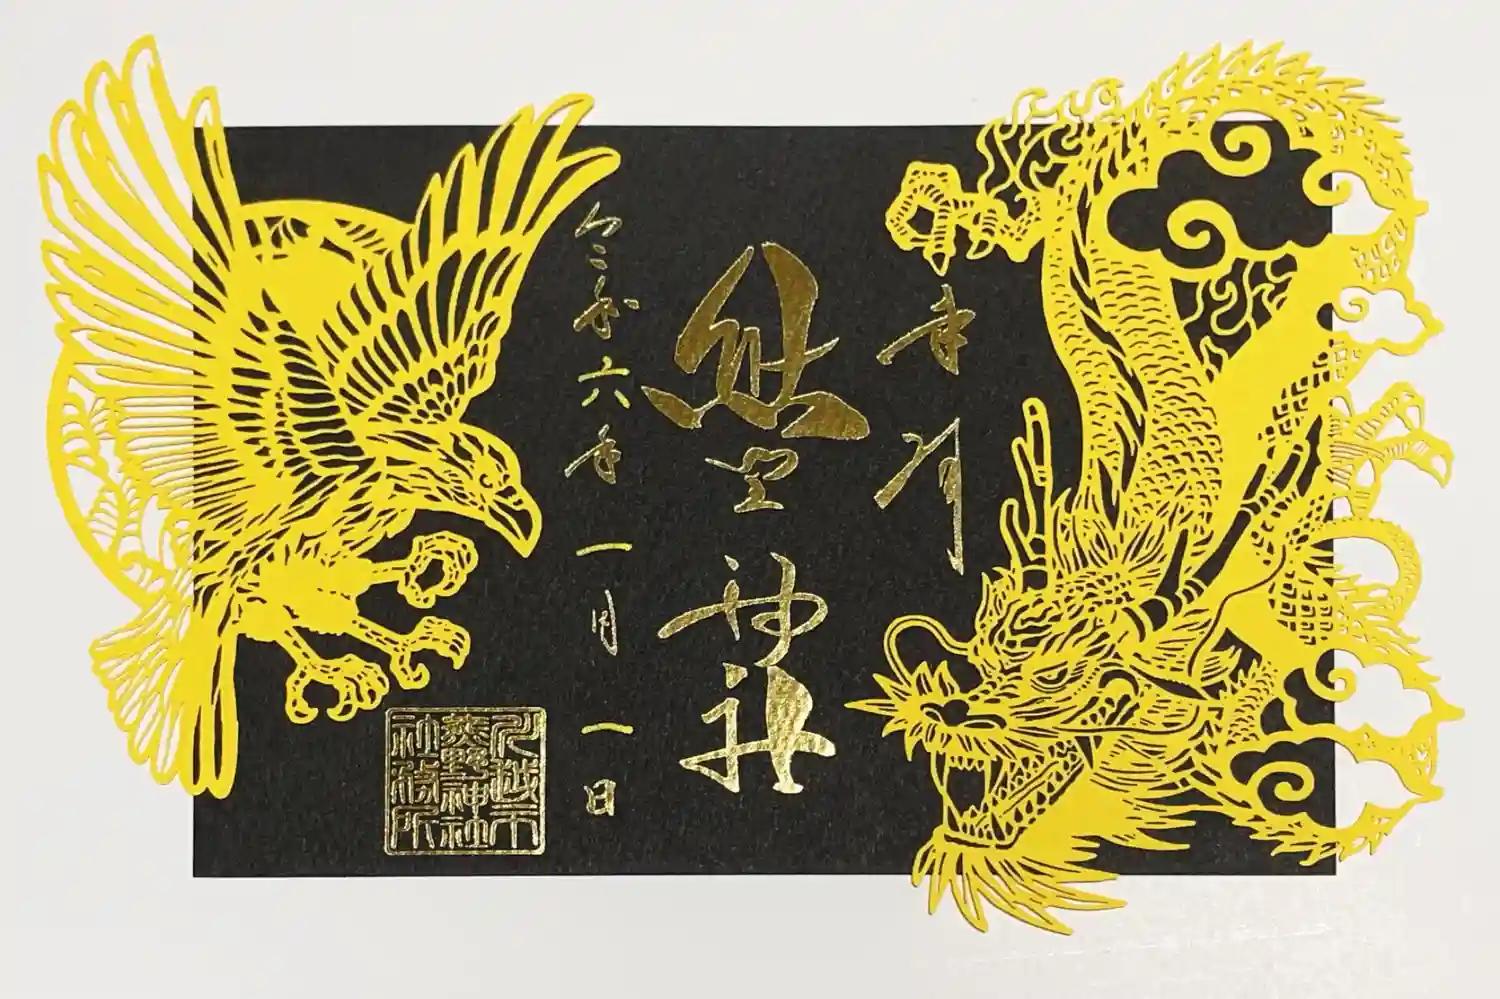 奉拝
熊野神社
令和六年一月一日
川越市
熊野神社
社務所